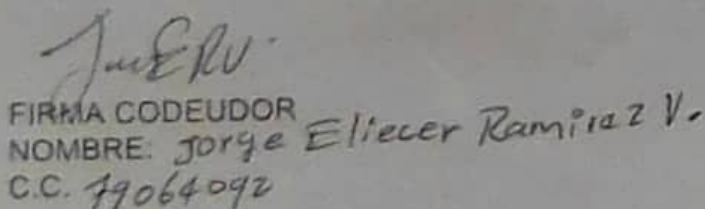 JorERV.
FIRMA CODEUDOR
NOMBRE: Jorge Eliecer Ramirez V.
C.C. 79064092